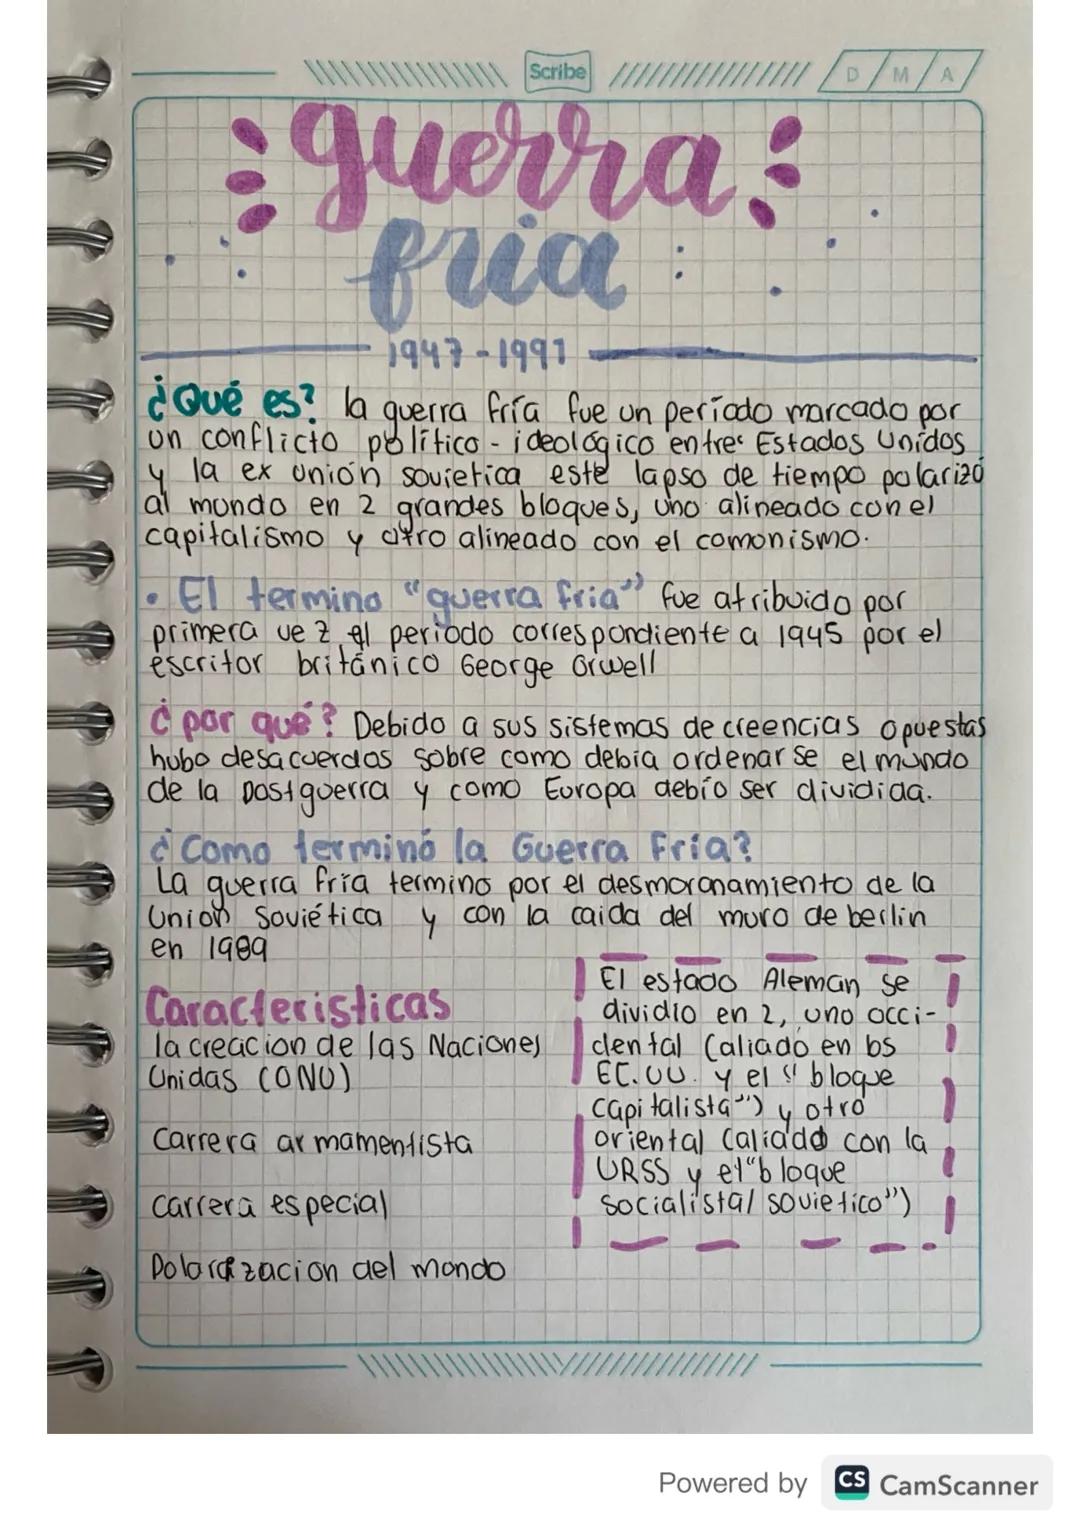 Scribe
D M A
guerra
fria
1947-1991
¿Qué es? la guerra fría fue un período marcado por
un conflicto político - ideológico entre Estados Unidos
y la ex unión sovietica este lapso de tiempo polarizó
al mundo en 2 grandes bloques, uno alineado con el
capitalismo y otro alineado con el comonismo.
• El termino "guerra fria" fue atribuido por
primera vez al período correspondiente a 1945 por el
escritor británico George Orwell
¿por qué? Debido a sus sistemas de creencias opuestas
hubo desacuerdos sobre como debia ordenarse el mundo
de la postguerra y como Europa debío ser dividida.
¿Como terminó la Guerra Fría?
La guerra fría termino por el desmoronamiento de la
Union Soviética y con la caida del muro de berlin
en 1989
Caracteristicas
la creacion de las Naciones
Unidas (ONU)
Carrera armamentista
Carrera especial
Polarizacion del mondo
El estado Aleman se
dividio en 2, uno occi-
dental (aliado en los
EE.UU. y el "bloque
capitalista") y otro
oriental (aliado con la
URSS y el "bloque
socialista/ sovietico")
Powered by CS CamScanner